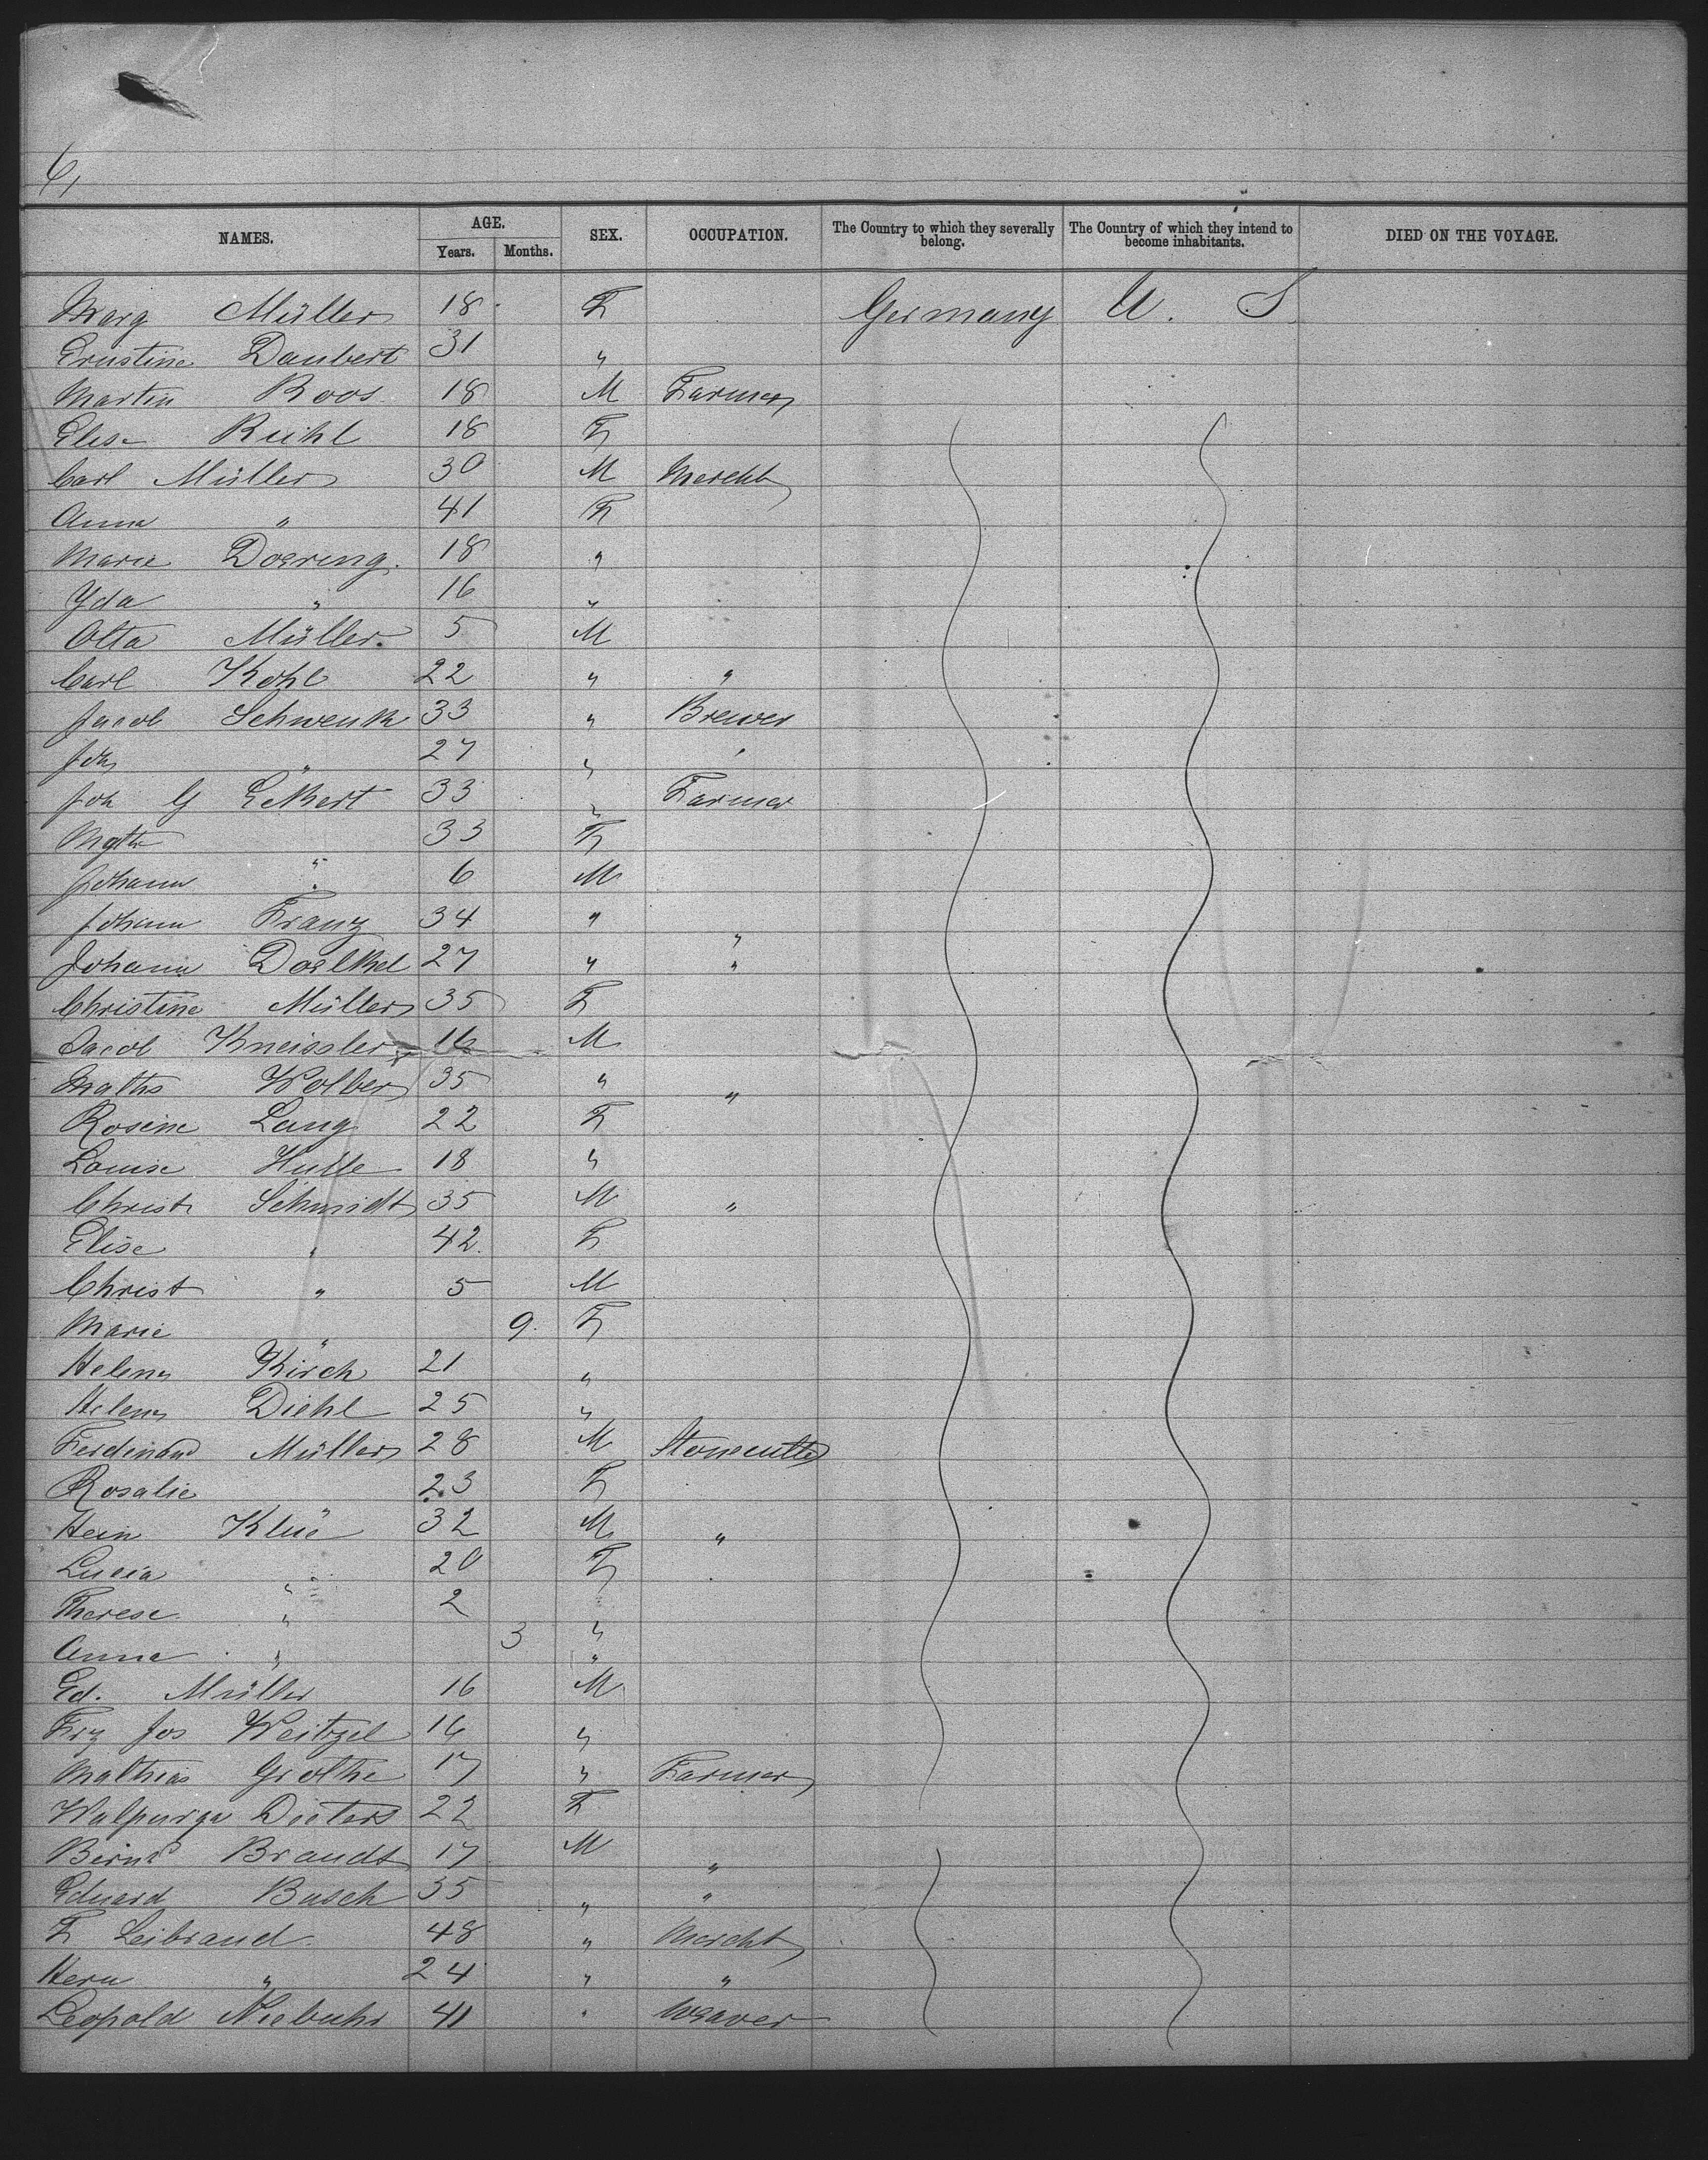 6,
NAMES. AGE. Years. Months. SEX. OCCUPATION. The Country to which they severally belong. The Country of which they intend to become inhabitants. DIED ON THE VOYAGE.
Marg Müller 18 F Germany U. S
Ernstine Daubert 31 "
Martin Roos 18 M Farmer
Elise Ruhl 18 F
Carl Müller 30 M Mercht
Anna " 41 F
Marie Doering 18 "
Yda " 16 "
Otto Müller 5 M
Carl Kohl 22 " "
Jacob Schwenk 33 " Brewer
Joh " 27 " "
Joh G Eckert 33 " Farmer
Mgth " 33 F
Johann " 6 M
Johann Franz 34 " "
Johann Doelkel 27 " "
Christine Müller 35 F
Jacob Kneissler 16 M
Maths Wolber 35 " "
Rosine Lang 22 F
Louise 18 "
Christ Schmidt 35 M "
Elise " 42 F
Christ " 5 M
Marie " 9 F
Helena Kirch 21 "
Helena Diehl 25 "
Ferdinand Müller 28 M Stonecutter
Rosalie " 23 F
Hein Klüe 32 M "
Lucia " 20 F
Therese " 2 "
Anna " 3 "
Ed. Müller 16 M
Frz Jos Weitzel 16 "
Mathias Grothe 17 " Farmer
Walpurga Dieters 22 F
Bernd Brandt 17 M "
Eduard Busch 35 " "
F Leibrand 48 " Mercht
Herm " 24 " "
Leopold Niebuhr 41 " Weaver